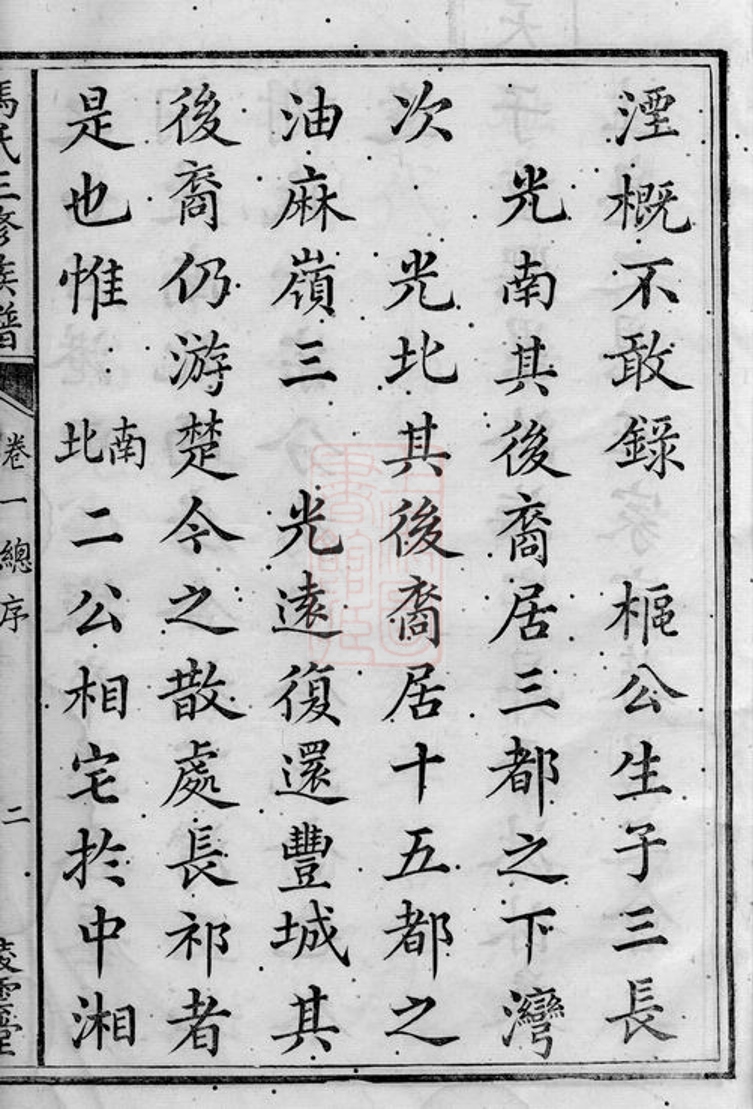 湮概不敢錄　樞公生子三長
光南其後裔居三都之下灣
次　光北其後裔居十五都之
油麻嶺三　光遠復還豐城其
後裔仍游楚今之散處長祁者
是也惟南北二公相宅於中湘
馮氏三修族譜
卷一總序
二